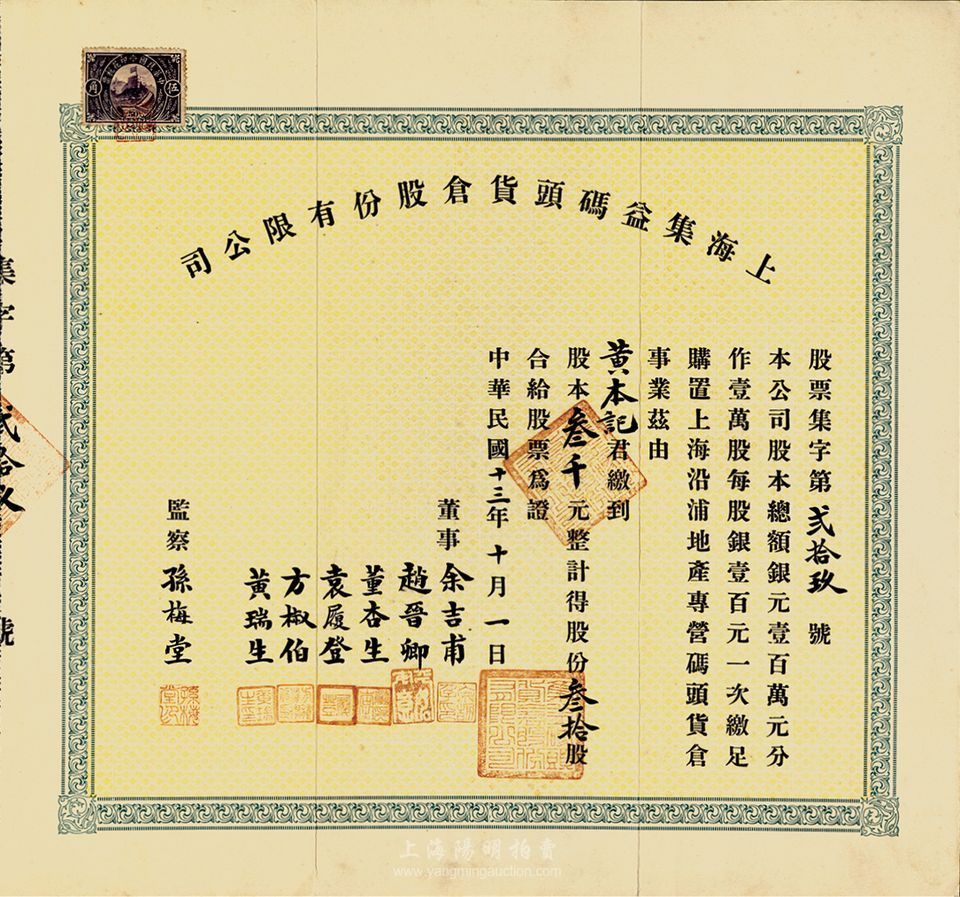 上海集益碼頭貨倉股份有限公司
股票集字第貳拾玖號
本公司股本總額銀元壹百萬元分
作壹萬股每股銀壹百元一次繳足
購置上海沿浦地產專營碼頭貨倉
事業茲由
黃本記君繳到
股本叁千元整計得股份叁拾股
合給股票爲證
中華民國十三年十月一日
董事 余吉甫
趙晉卿
董杏生
袁履登
方椒伯
黃瑞生
監察 孫梅堂
集字第貳拾玖號
伍角
上海陽明拍賣
www.yangmingauction.com